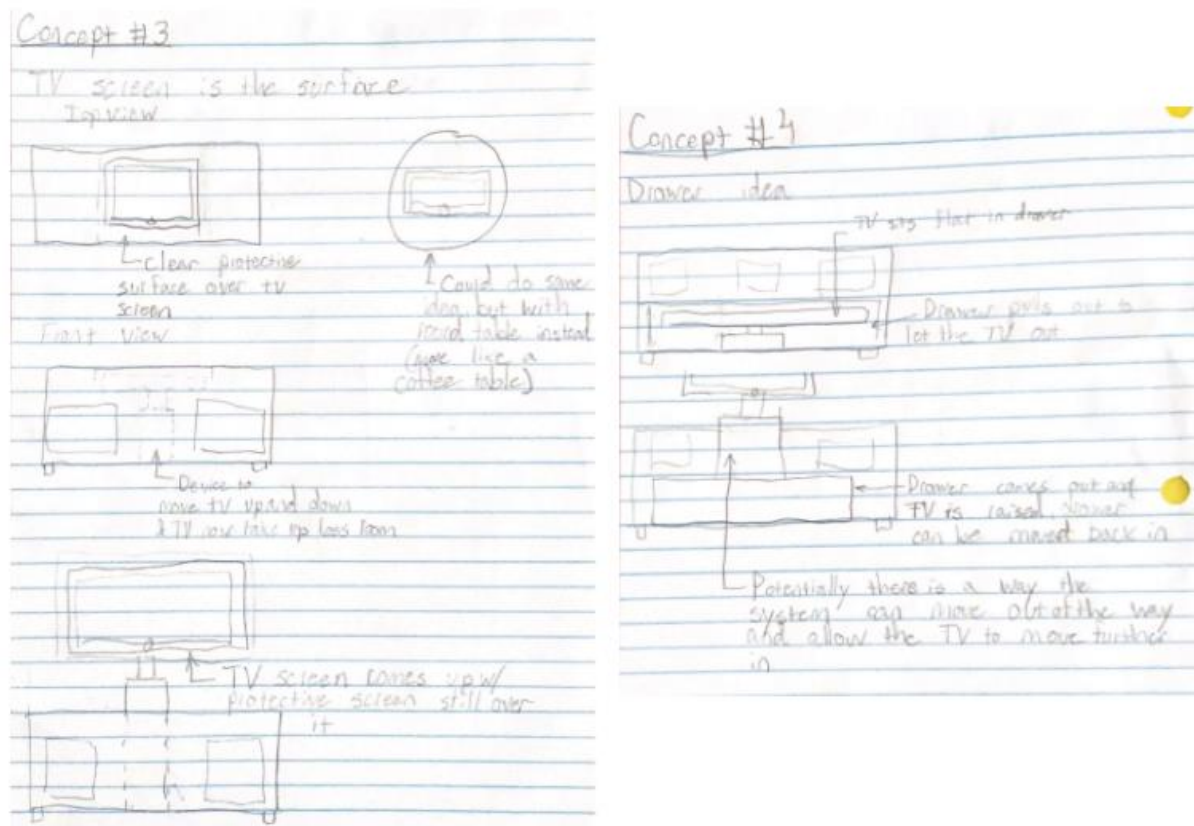 Concept #3
TV screen is the surface
Top view
Clear protective
surface over tv
screen
Could do same
idea but with
round table instead
(more like a
coffee table)
Front view
Device to
move tv up and down
& TV now take up less room
TV screen comes up w/
protective screen still over
it
Concept #4
Drawer idea
TV sits flat in drawer
Drawer pulls out to
let the TV out
Drawer comes out and
TV is raised, drawer
can be moved back in
Potentially there is a way the
system can move out of the way
and allow the TV to move further
in